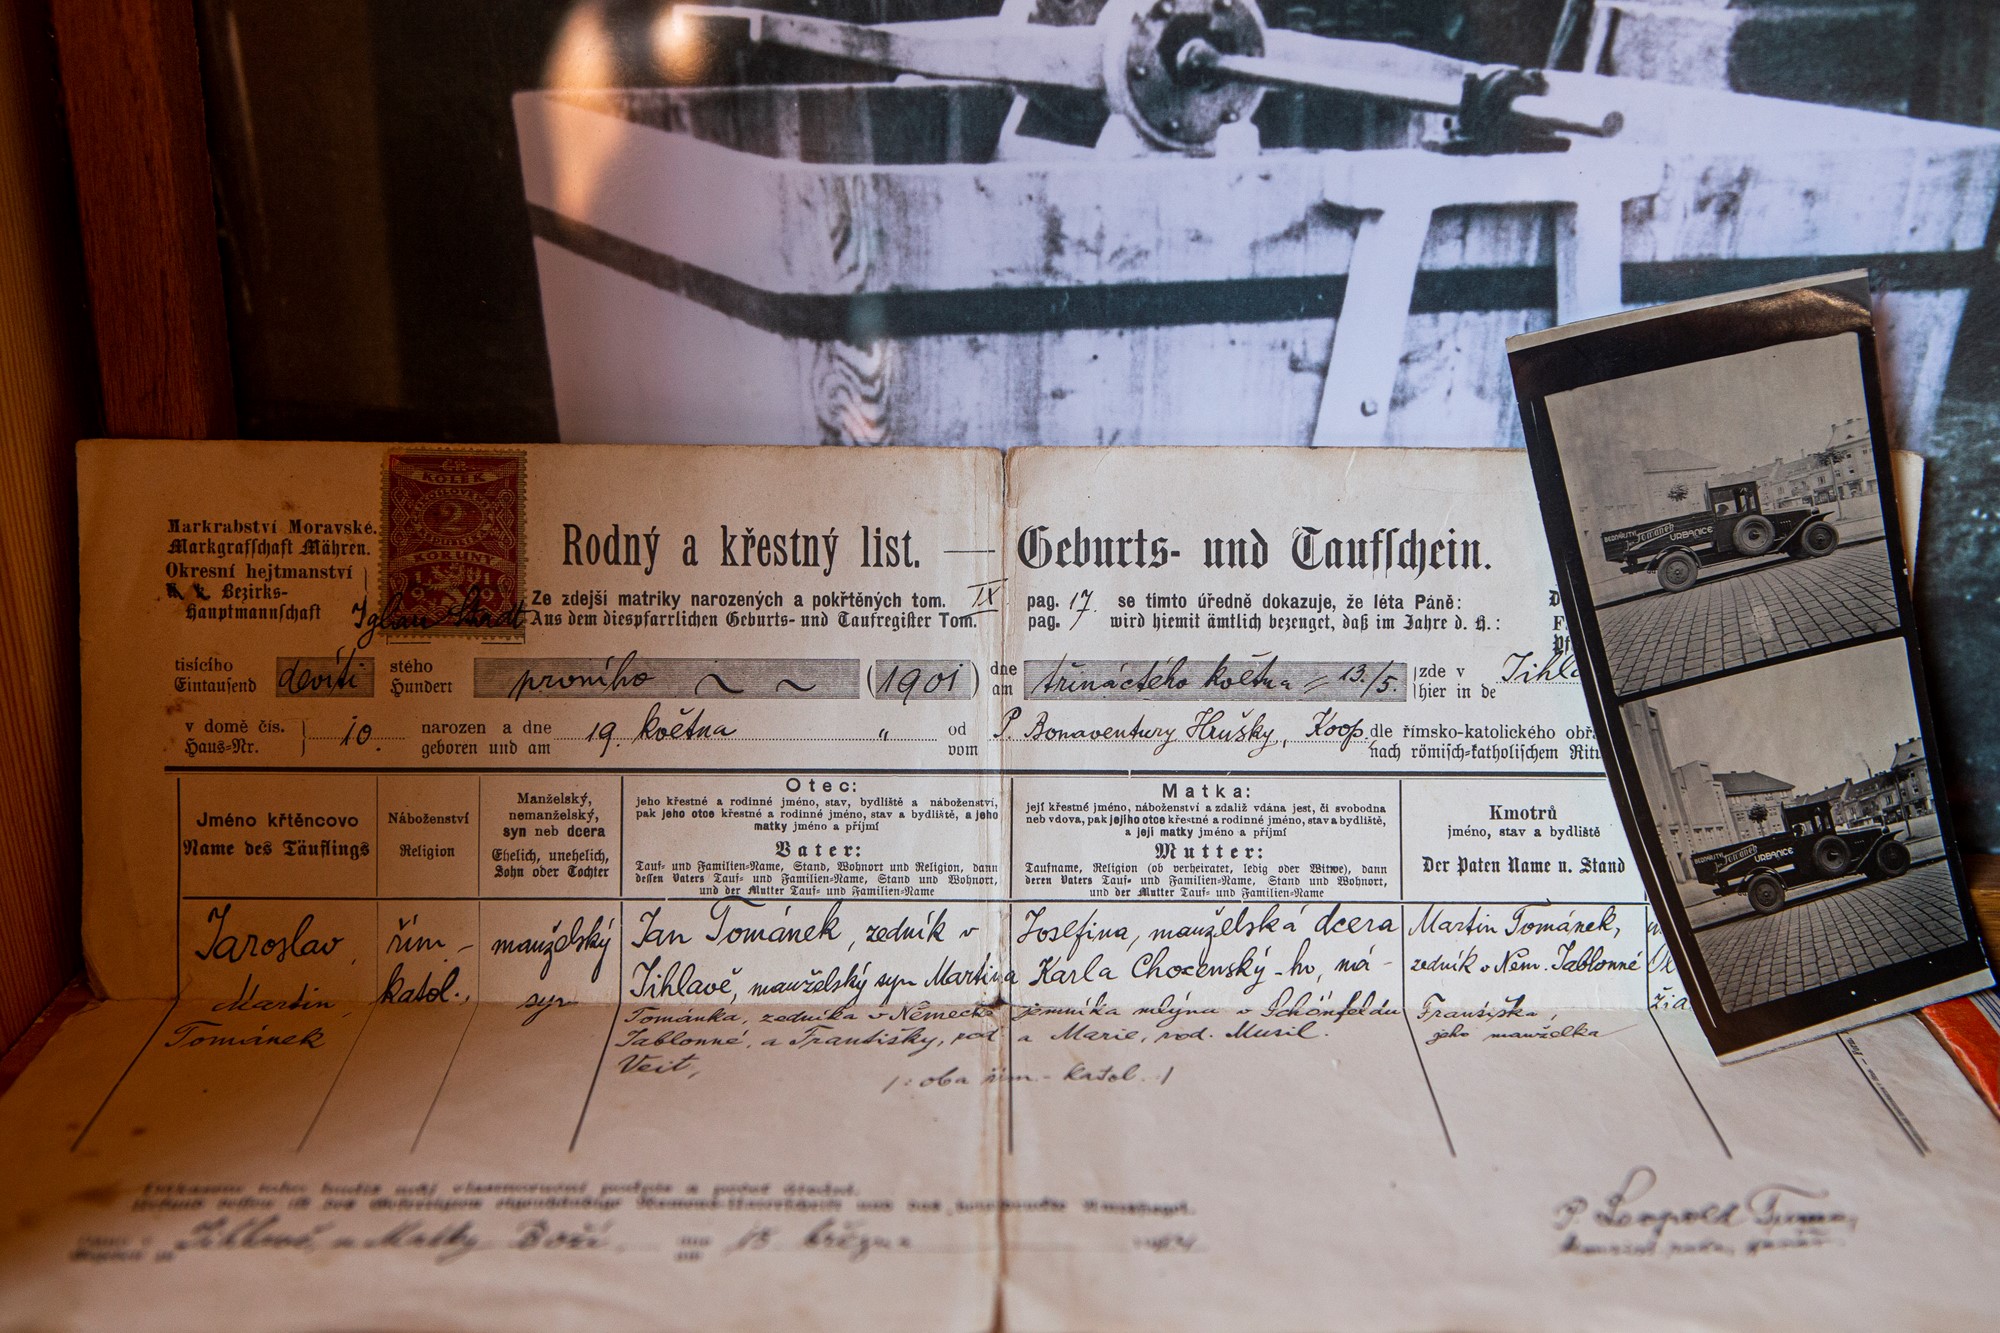 Markrabství Moravské.
Markgrafschaft Mähren.
Okresní hejtmanství
k. k. Bezirks-
Hauptmannschaft
Iglau Stadt
KOLEK
2
KORUNY
1919
Rodný a křestný list. — Geburts- und Taufschein.
Ze zdejší matriky narozených a pokřtěných tom. IX pag. 17. se tímto úředně dokazuje, že léta Páně:
Aus dem diespfarrlichen Geburts- und Taufregister Tom. pag. wird hiemit ämtlich bezeuget, daß im Jahre d. H.:
tisícího devíti stého prvního (1901) dne třináctého května = 13./5. zde v
Eintausend Hundert am hier in de
v domě čís. 10. narozen a dne 19. května " od P. Bonaventury Hrušky, Koop. dle římsko-katolického
Haus-Nr. geboren und am vom nach römisch-katholischem
Jméno křtěncovo
Name des Täuflings
Náboženství
Religion
Manželský,
nemanželský,
syn neb dcera
Ehelich, unehelich,
Sohn oder Tochter
Otec:
jeho křestné a rodinné jméno, stav, bydliště a náboženství,
pak jeho otce křestné a rodinné jméno, stav a bydliště, a jeho
matky jméno a příjmí
Vater:
Tauf- und Familien-Name, Stand, Wohnort und Religion, dann
dessen Vaters Tauf- und Familien-Name, Stand und Wohnort,
und der Mutter Tauf- und Familien-Name
Matka:
její křestné jméno, náboženství a zdaliž vdána jest, či svobodna
neb vdova, pak jejího otce křestné a rodinné jméno, stav a bydliště,
a její matky jméno a příjmí
Mutter:
Taufname, Religion (ob verheiratet, ledig oder Witwe), dann
deren Vaters Tauf- und Familien-Name, Stand und Wohnort,
und der Mutter Tauf- und Familien-Name
Kmotrů
jméno, stav a bydliště
Der Paten Name u. Stand
Jaroslav
Martin
Tománek
řím.-
katol.,
manželský
syn
Jan Tománek, zedník v
Jihlavě, manželský syn Martina
Tománka, zedníka v Německé
Jablonné, a Františky, rod.
Veit,
Josefina, manželská dcera
Karla Chocenský-ho, ná-
jemníka mlýna v Schönfeldu
a Marie, rod. Musil.
/: oba řím.-katol. :/
Martin Tománek,
zedník v Něm. Jablonné
Františka,
jeho manželka
Jihlavě, u Matky Boží, 15 března
P. Leopold
BEDNÁŘSTVÍ Jan Tománek URBANICE
BEDNÁŘSTVÍ Jan Tománek URBANICE